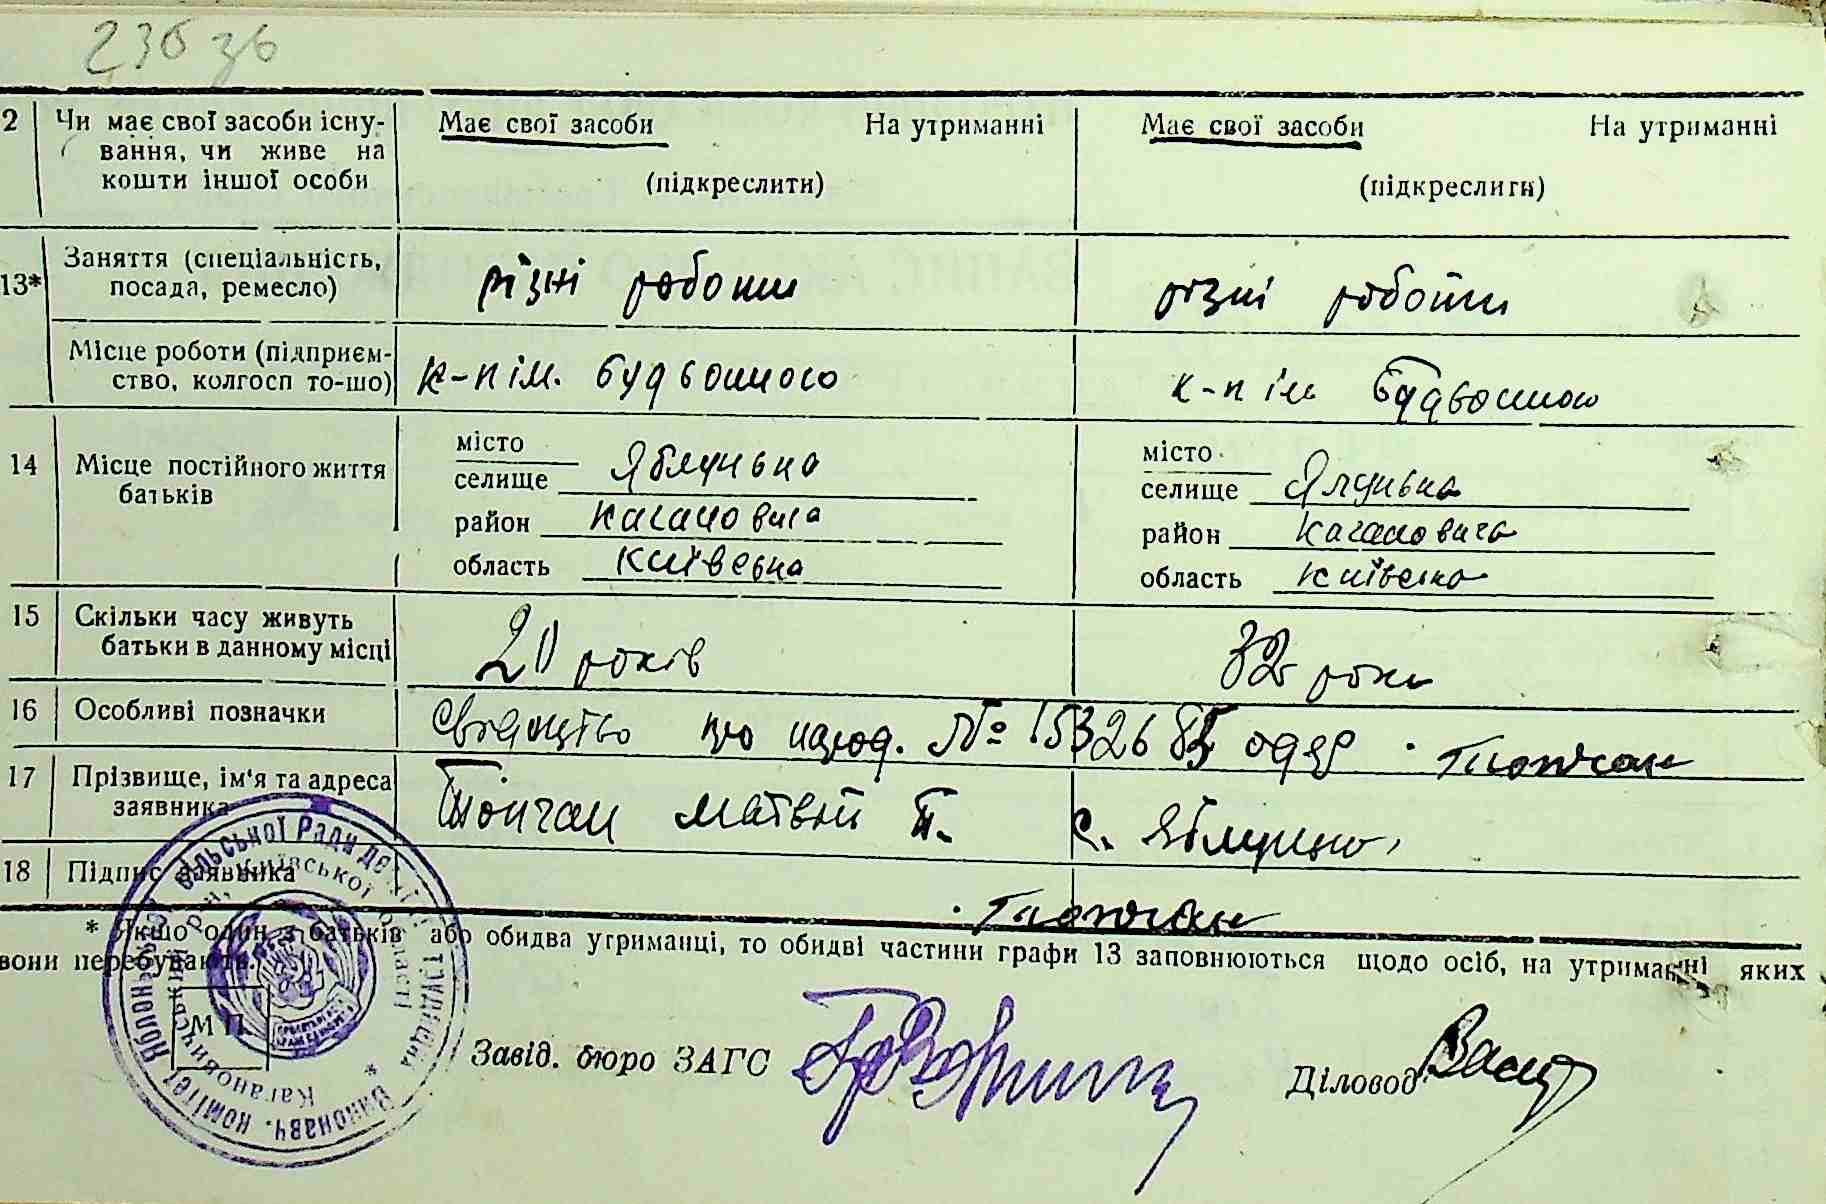 236 зв
2 Чи має свої засоби існу- Має свої засоби На утриманні Має свої засоби На утриманні
вання, чи живе на
кошти іншої особи (підкреслити) (підкреслити)
13* Заняття (спеціальність, різні роботи різні роботи
посада, ремесло)
Місце роботи (підприєм- к-п ім. будьонного к-п ім будьонного
ство, колгосп то-що)
14 Місце постійного життя місто Яблунька місто Ялунька
батьків селище селище
район Кагановича район Кагановича
область Київська область Київська
15 Скільки часу живуть 20 років 32 роки
батьки в данному місці
16 Особливі позначки свідоцтво про народ. № 1532685 одер.
17 Прізвище, ім'я та адреса Матвій П. с. Яблунька
заявника
18 Підпис заявника
* Якщо один з батьків або обидва утриманці, то обидві частини графи 13 заповнюються щодо осіб, на утриманні яких
вони перебувають.
М П
Завід. бюро ЗАГС Діловод
Виконавч. комітет Яблонської сільської Ради депутатів трудящих
Кагановичський рай. Київської області